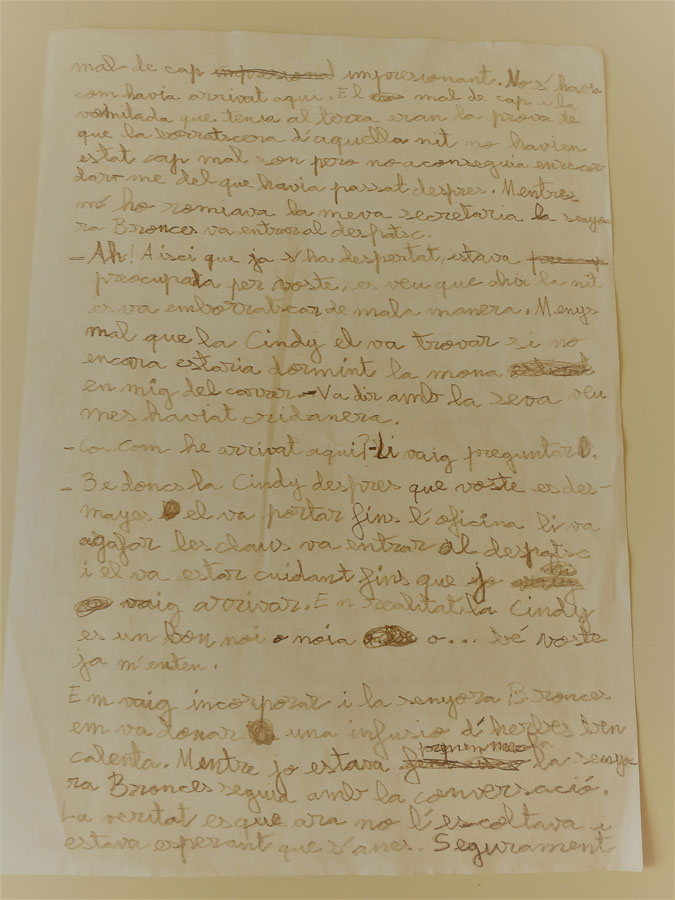 mal de cap impresionant. No s'havia
com havia arrivat aqui. El mal de cap i la
vomitada que tenia al terra eran la prova de
que la borratscera d'aquella nit no havien
estat cap mal son pero no aconseguia enrecor-
dar-me del que havia passat despres. Mentres
m' ho romiava la meva secretaria la senyo-
ra Bronces va entrar al despatsc.
- Ah! Aisci que ja s'ha despertat, estava
preocupada per voste, es veu que ahir la nit
es va emborratcar de mala manera. Menys
mal que la Cindy el va trovar si no
encara estaria dormint la mona
en mig del carrer - Va dir amb la seva veu
mes haviat cridanera.
- Co..com he arrivat aqui? - Li vaig preguntar.
- Be doncs la Cindy despres que voste es des-
mayes el va portar fins l'oficina li va
agafar les claus va entrar al despatsc
i el va estar cuidant fins que jo
vaig arrivar. En realitat la Cindy
es un bon noi o noia o... bé voste
ja m'enten.
Em vaig incorporar i la senyora Bronces
em va donar una infusio d'herbes ben
calenta. Mentre jo estava la senyo-
ra Bronces seguia amb la conversació.
La veritat es que ara no l'escoltava i
estava esperant que s'anes. Segurament